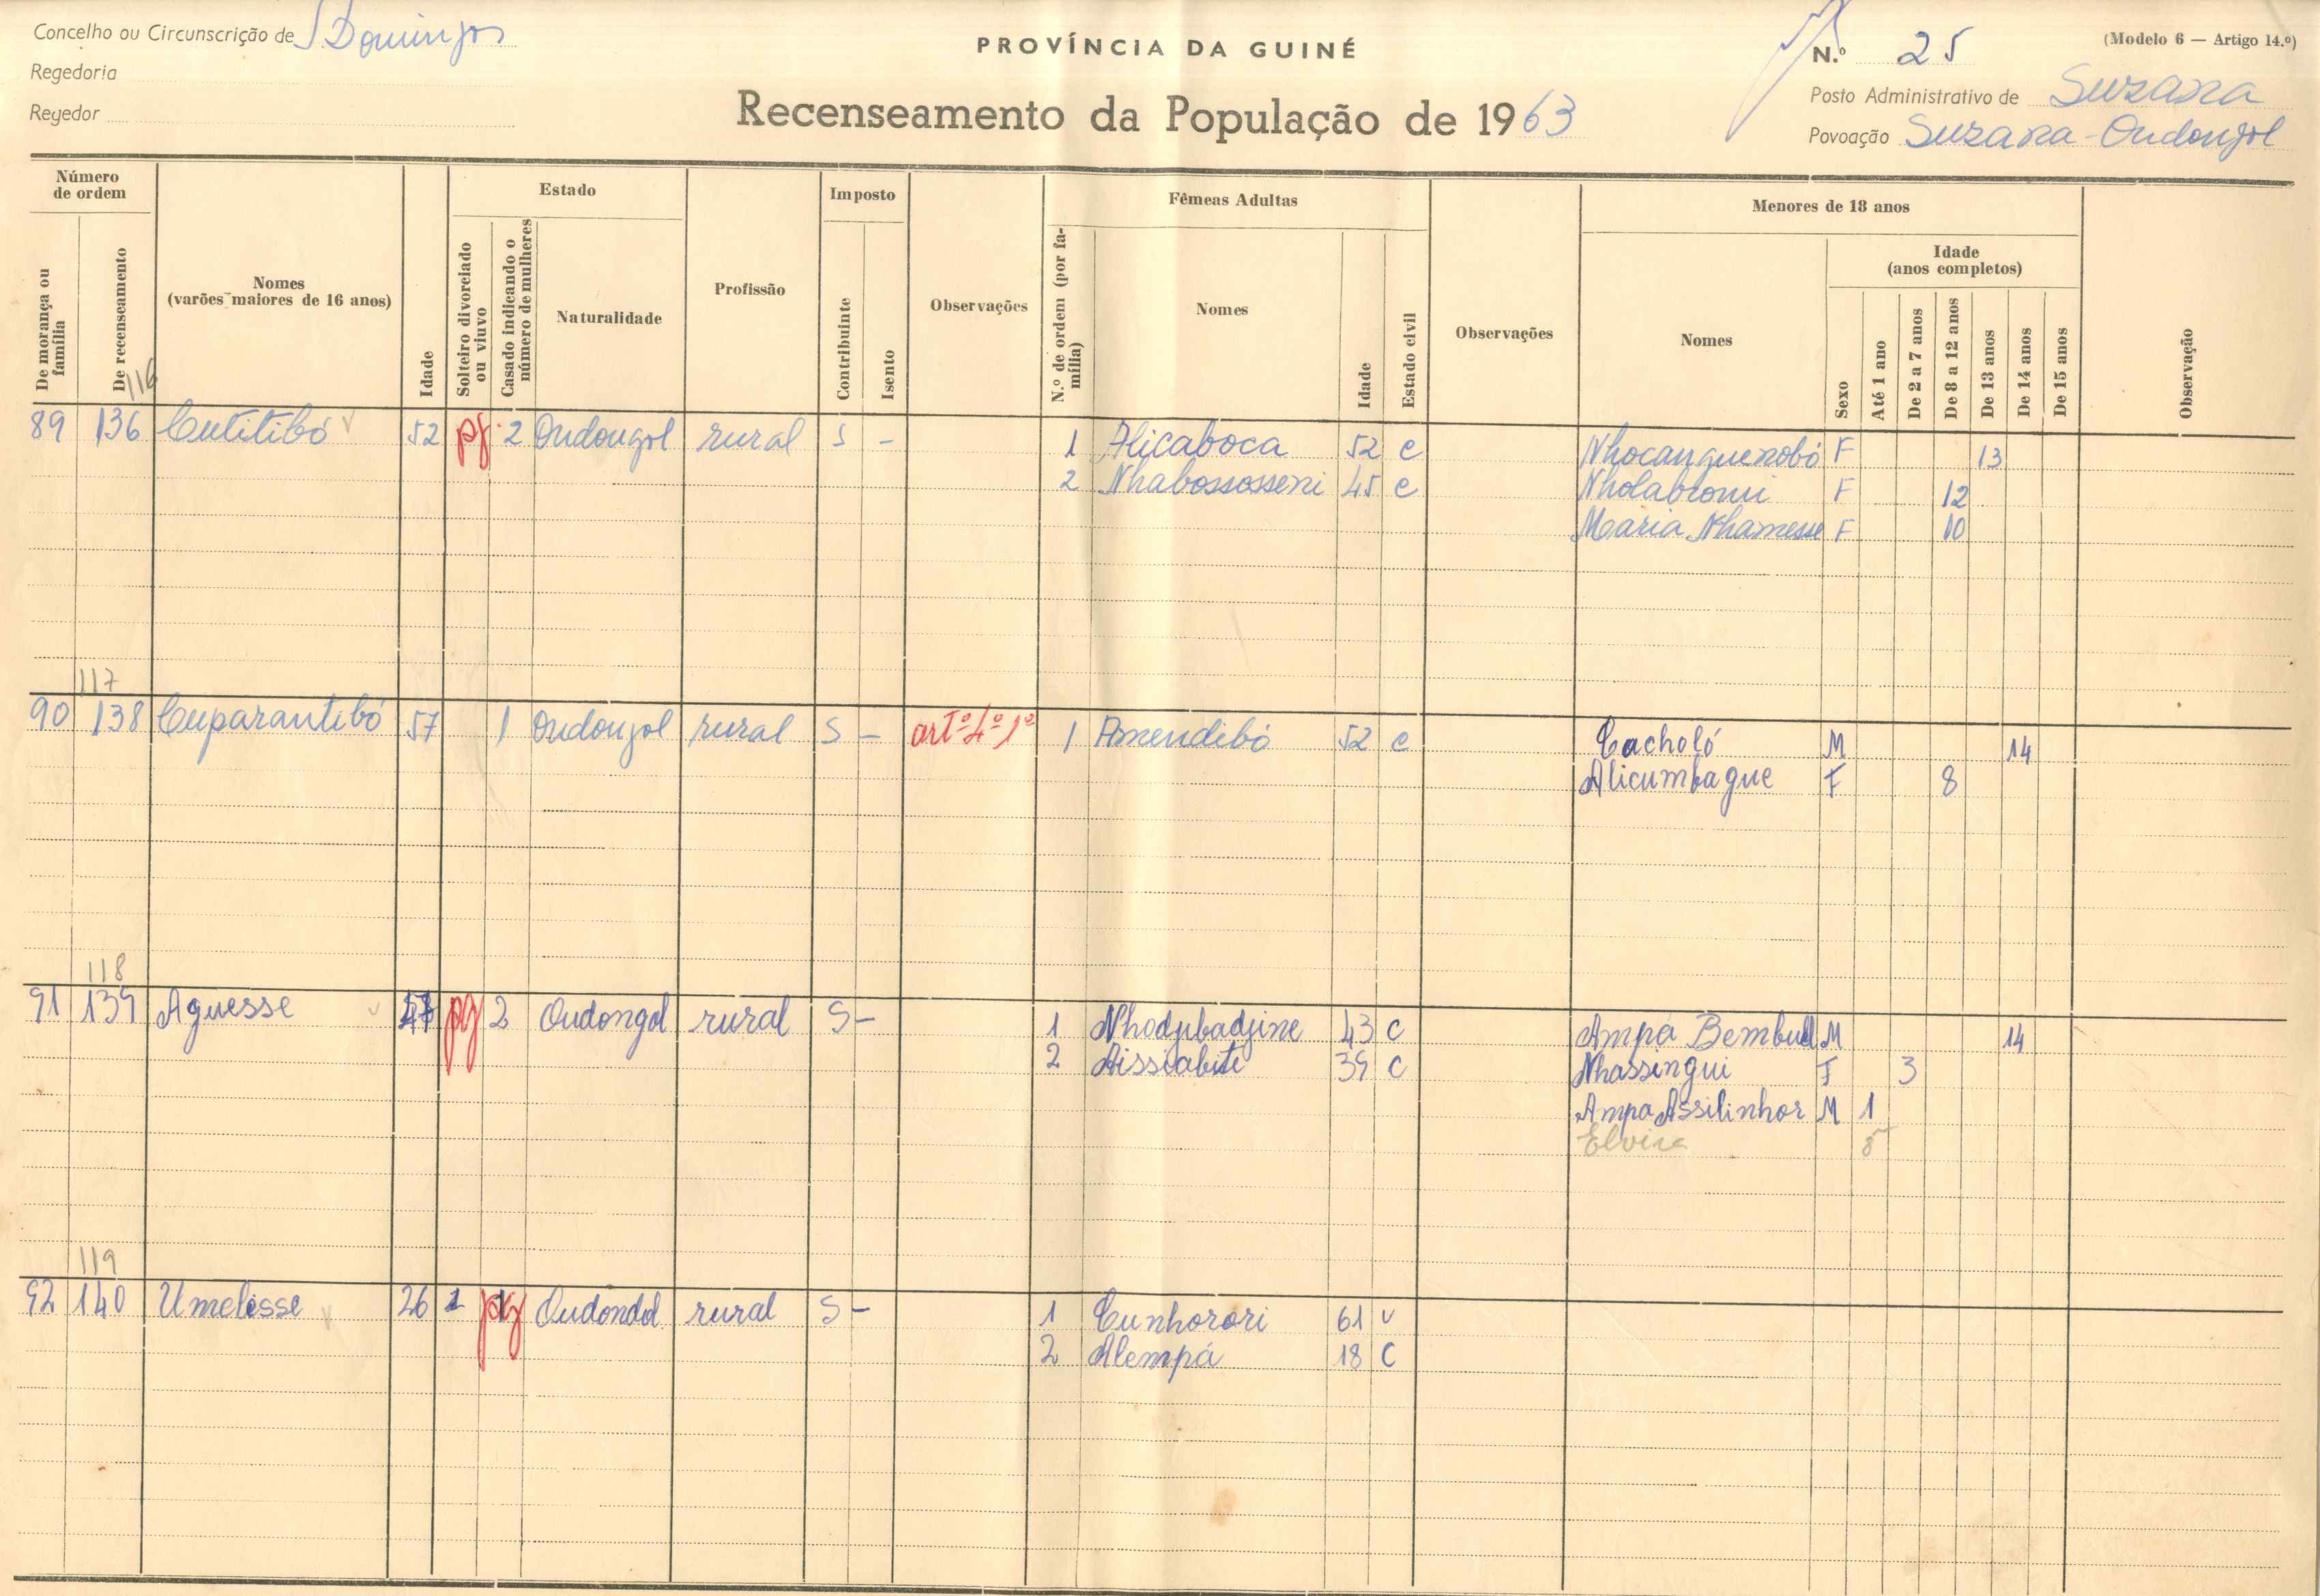 Concelho ou Circunscrição de S. Domingos
Regedoria
Regedor
PROVÍNCIA DA GUINÉ
Recenseamento da População de 1963
N.º 25
(Modelo 6 — Artigo 14.º)
Posto Administrativo de Suzana
Povoação Suzana - Oudongol
Número de ordem
De morança ou família
De recenseamento
Nomes (varões maiores de 16 anos)
Idade
Estado
Solteiro divorciado ou viuvo
Casado indicando o número de mulheres
Naturalidade
Profissão
Imposto
Contribuinte
Isento
Observações
N.º de ordem (por família)
Fêmeas Adultas
Nomes
Idade
Estado civil
Observações
Menores de 18 anos
Nomes
Sexo
Idade (anos completos)
Até 1 ano
De 2 a 7 anos
De 8 a 12 anos
De 13 anos
De 14 anos
De 15 anos
Observação
116
89 136 Cutitibó 52 pg 2 Oudongol rural S - 1 Alicaboca 52 c Nhocanguenobó F 13
2 Nhabossosseni 45 c Nholabromi F 12
Maria Nhamesse F 10
117
90 138 Cuparantibó 57 1 Oudongol rural S - artº 4º 1º 1 Amendibó 52 c Cacholó M 14
Alicumbague F 8
118
91 139 Aguesse 47 pg 2 Oudongol rural S - 1 Nhodjibadjine 43 C Ampa Bembull M 14
2 Aissiabite 39 C Nhassingui F 3
Ampa Assilinhor M 1
Elvira 8
119
92 140 Umelisse 26 1 pg Oudondol rural S - 1 Cunhorori 61 v
2 Alempá 18 C